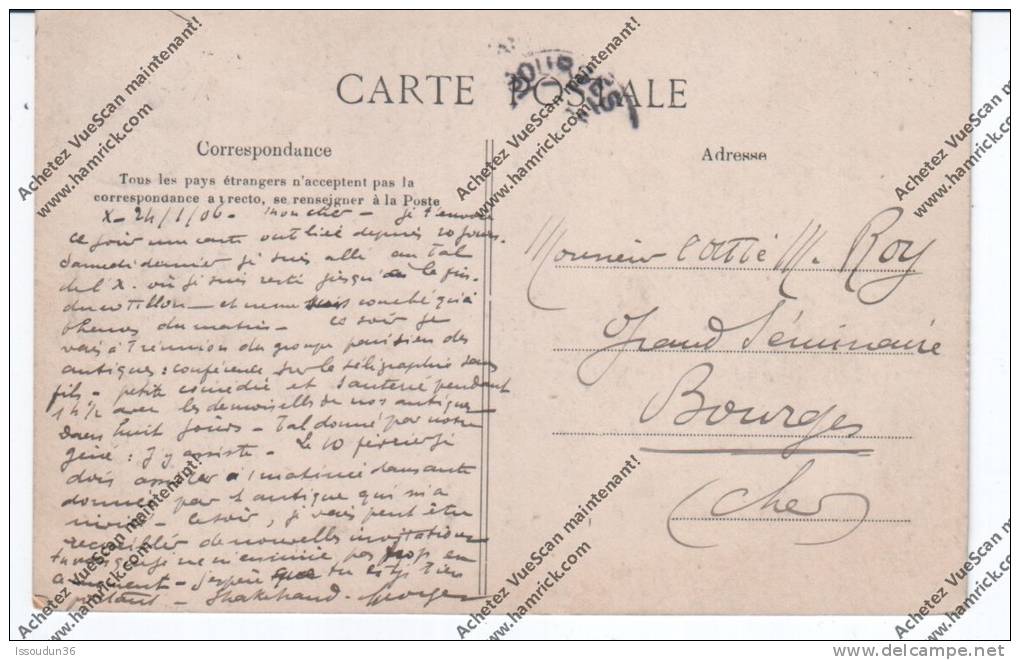 CARTE POSTALE
BOURGES
Correspondance
Adresse
Tous les pays étrangers n'acceptent pas la
correspondance au recto, se renseigner à la Poste
X - 24/1/06 - Mon cher - je t'envoie
ce soir une carte oubliée depuis 20 jours.
Samedi dernier je suis allé au bal
de l'X. où je suis resté jusqu'à la fin
du cotillon - et me couché qu'à
8 heures du matin - Ce soir je
vais à l'réunion du groupe parisien des
antiques : conférence sur la téligraphie sans
fils - petite comédie et sauterie pendant
1h 1/2 avec les demoiselles de nos antiques
Dans huit jours - bal donné par notre
géné : J'y assiste - Le 10 février je
dois assister à 1 matinée dansante
donnée par l'antique qui m'a
- Ce soir, je vais peut être
recueillir de nouvelles invitations
je ne m'ennuie pas trop en
moment - J'espère que tu es bien
portant - Shakehand - Georges
Monsieur l'abbé M. Roy
Grand Séminaire
Bourges
(Cher)
Achetez VueScan maintenant!
www.hamrick.com
Achetez VueScan maintenant!
www.hamrick.com
Achetez VueScan maintenant!
www.hamrick.com
Achetez VueScan maintenant!
www.hamrick.com
Achetez VueScan maintenant!
www.hamrick.com
Achetez VueScan maintenant!
www.hamrick.com
Achetez VueScan maintenant!
www.hamrick.com
Achetez VueScan maintenant!
www.hamrick.com
Achetez VueScan maintenant!
www.hamrick.com
Issoudun36
delcampe.net